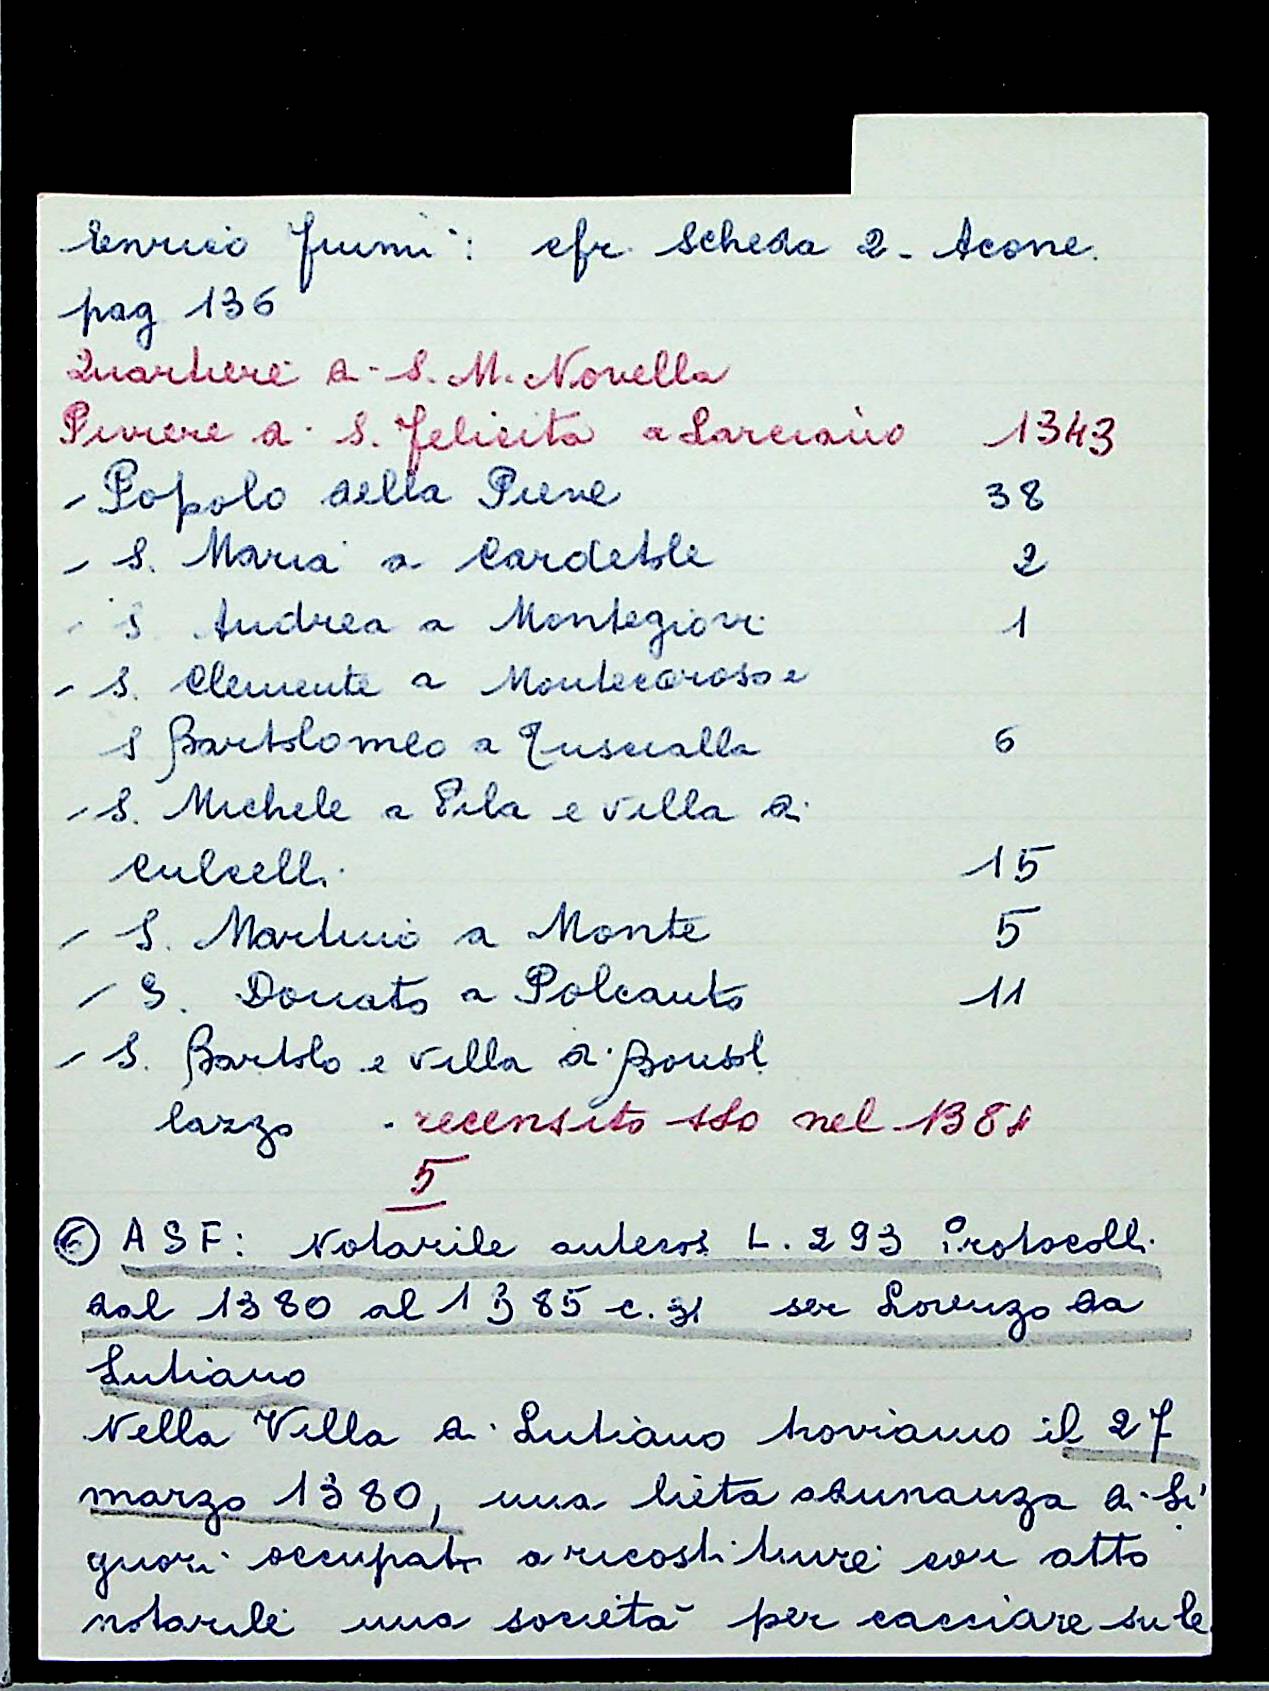 Enrico Fiumi: cfr. Scheda 2 - Acone.
pag 136
Quartiere di S. M. Novella
Piviere di S. Felicita a Larciano 1343
- Popolo della Pieve 38
- S. Maria a Cardetole 2
- S. Andrea a Montegiovi 1
- S. Clemente a Montecarosse
S Bartolomeo a Tuscialla 6
- S. Michele a Pila e villa di
Culcelli 15
- S. Martino a Monte 5
- S. Donato a Polcanto 11
- S. Bartolo e villa di Bonsol
lazzo - recensito solo nel 1384
5
⑥ ASF: Notarile antecos. L. 293 Protocolli
dal 1380 al 1385 c. 31 ser Lorenzo da
Lutiano
Nella Villa di Lutiano troviamo il 27
marzo 1380, una lieta adunanza di Si
gnori occupati a ricostituire con atto
notarile una società per cacciare su le